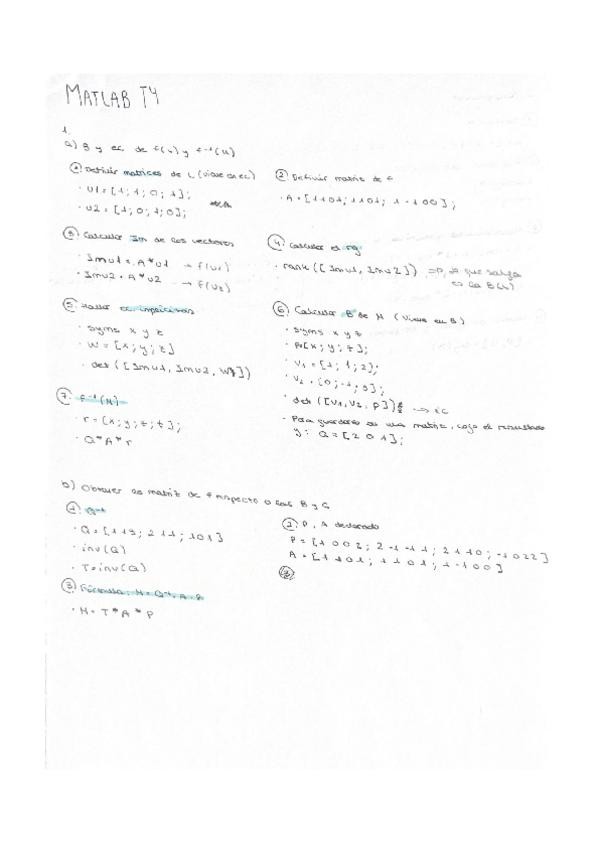 MATLAB T4
1.
a) B y ec. de f(L) y f⁻¹(M)
① Definir matrices de L (viene en ec)
· u1 = [1; 1; 0; 1];
· u2 = [1; 0; 1; 0];
② Definir matriz de f
· A = [1 1 0 1; 1 1 0 1; 1 -1 0 0];
③ Calcular Im de los vectores
· Imu1 = A*u1 → f(u1)
· Imu2 = A*u2 → f(u2)
④ Calcular el rg
· rank([Imu1, Imu2]) ⇒ lo que salga
es la B(L)
⑤ Hallar ec implícitas
· syms x y z
· W = [x; y; z]
· det([Imu1, Imu2, W])
⑥ Calcular B de M (viene en B)
· syms x y z
· P=[x; y; z];
· V1 = [1; 1; 2];
· V2 = [0; -1; 3];
· det([V1, V2, P]) → ec
· Para guardarlo en una matriz, cojo el resultado
y: Q = [2 0 1];
⑦ f⁻¹(M)
· r = [x; y; z; t];
· Q*A*r
b) Obtener la matriz de f respecto a las B y C
① Q⁻¹
· Q = [1 1 3; 2 1 1; 1 0 1]
· inv(Q)
· T = inv(Q)
② P, A declarado
P = [1 0 0 2; 2 -1 -1 1; 2 1 1 0; -1 0 2 2]
A = [1 1 0 1; 1 1 0 1; 1 -1 0 0]
③ Fórmula: M = Q⁻¹ · A · P
· M = T * A * P